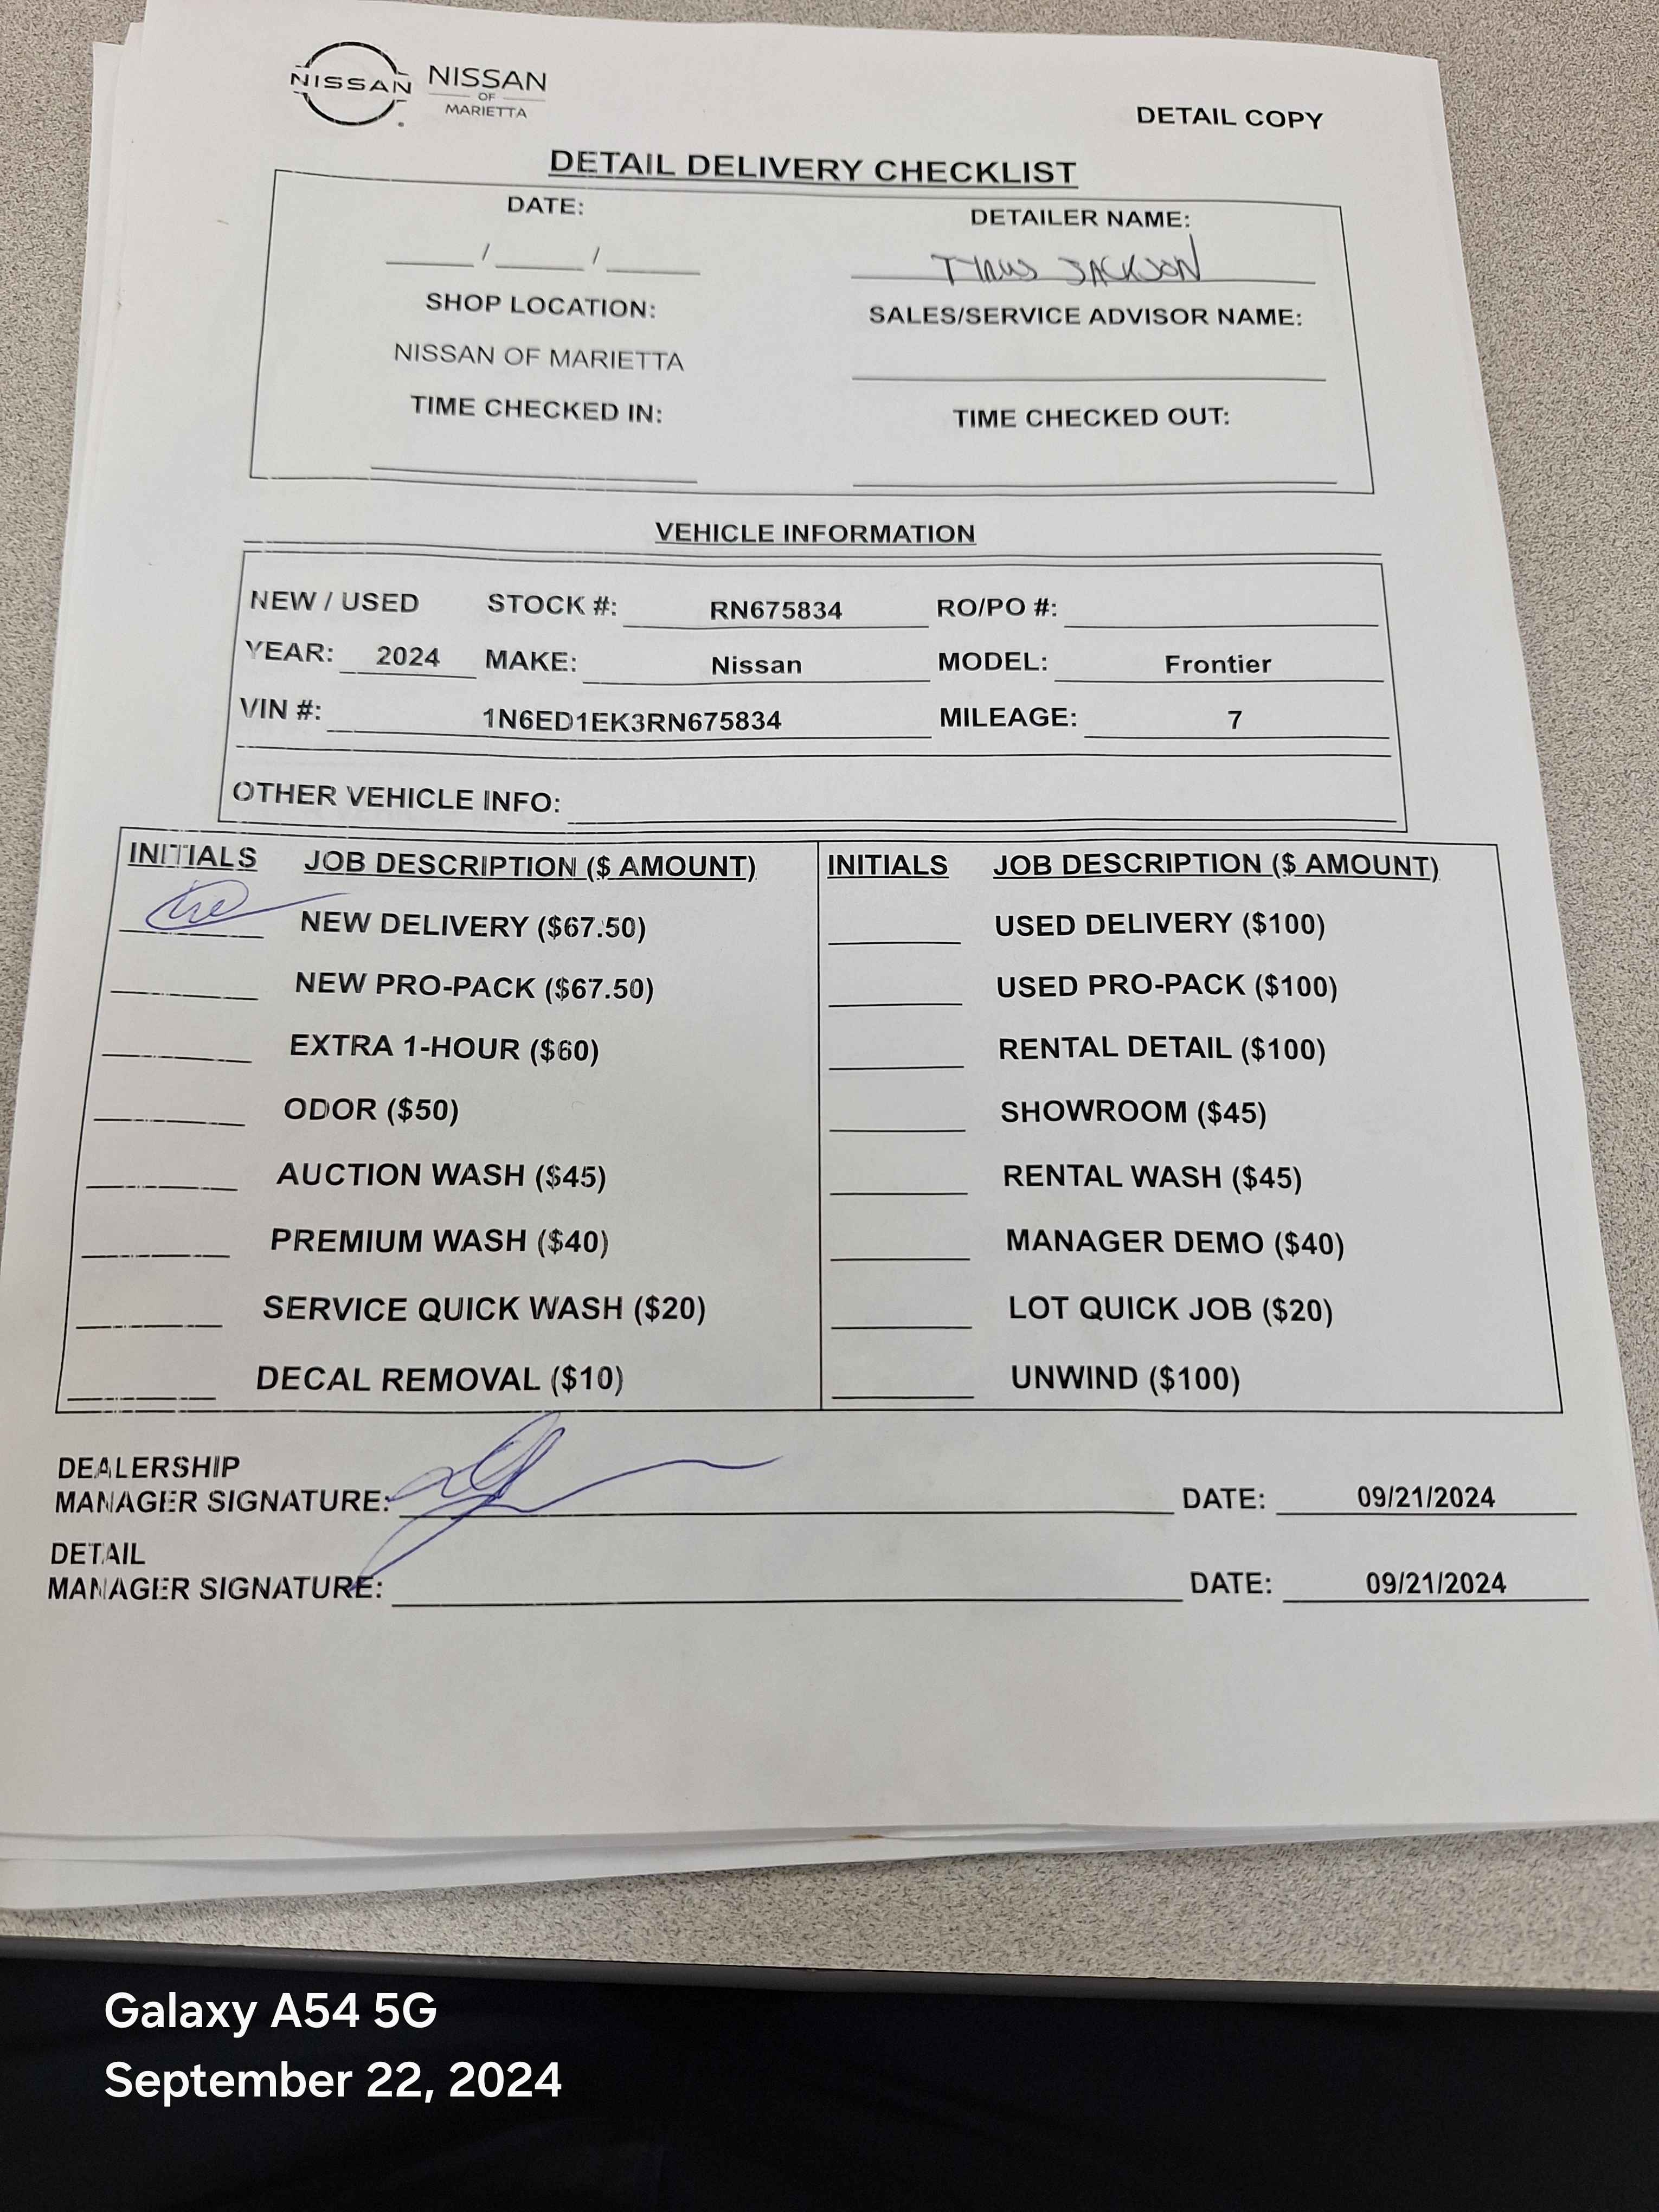 NISSAN NISSAN
OF
MARIETTA
DETAIL COPY
DETAIL DELIVERY CHECKLIST
DATE: DETAILER NAME:
/ / JACKSON
SHOP LOCATION: SALES/SERVICE ADVISOR NAME:
NISSAN OF MARIETTA
TIME CHECKED IN: TIME CHECKED OUT:
VEHICLE INFORMATION
NEW / USED STOCK #: RN675834 RO/PO #:
YEAR: 2024 MAKE: Nissan MODEL: Frontier
VIN #: 1N6ED1EK3RN675834 MILEAGE: 7
OTHER VEHICLE INFO:
INITIALS JOB DESCRIPTION ($ AMOUNT) INITIALS JOB DESCRIPTION ($ AMOUNT)
NEW DELIVERY ($67.50) USED DELIVERY ($100)
NEW PRO-PACK ($67.50) USED PRO-PACK ($100)
EXTRA 1-HOUR ($60) RENTAL DETAIL ($100)
ODOR ($50) SHOWROOM ($45)
AUCTION WASH ($45) RENTAL WASH ($45)
PREMIUM WASH ($40) MANAGER DEMO ($40)
SERVICE QUICK WASH ($20) LOT QUICK JOB ($20)
DECAL REMOVAL ($10) UNWIND ($100)
DEALERSHIP
MANAGER SIGNATURE: DATE: 09/21/2024
DETAIL
MANAGER SIGNATURE: DATE: 09/21/2024
Galaxy A54 5G
September 22, 2024